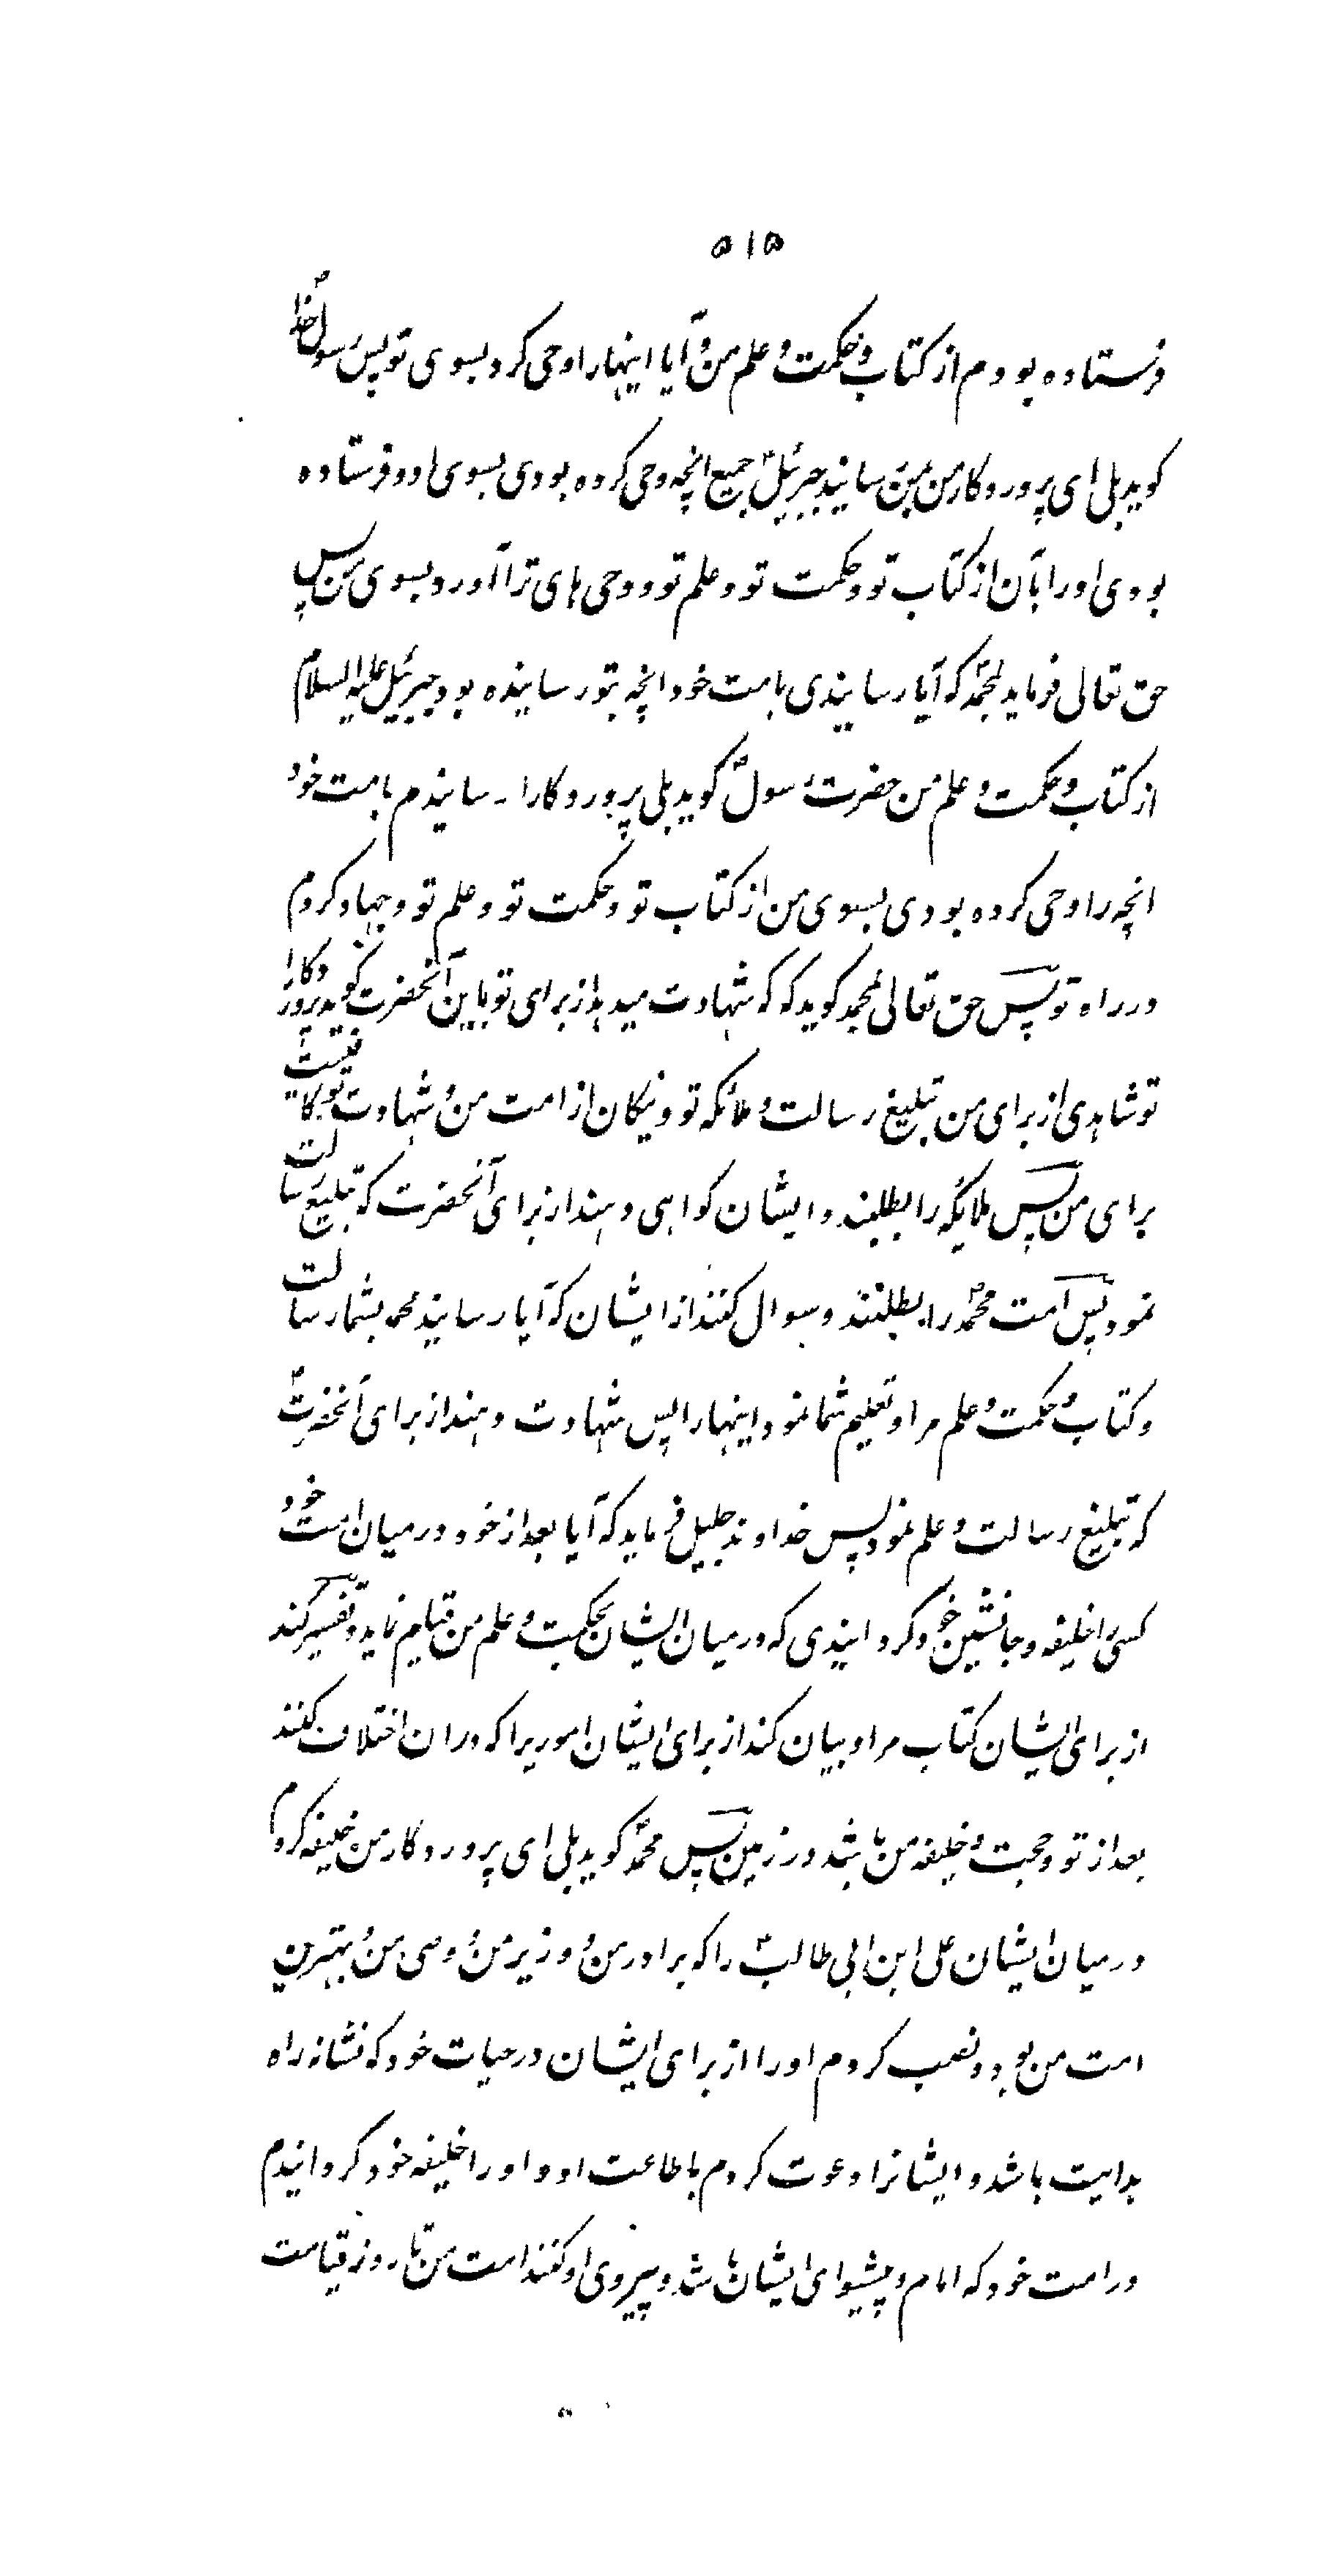 ۵۱۵
فرستاده بودم از کتاب و حکمت و علم من و آیا اینها را وحی کرد بسوی تو پس رسول خدا ص
کوید بلی ای پروردکار من بمن رسانید جبرئیل جمیع انچه وحی کرده بودی بسوی او و فرستاده
بودی او را بآن از کتاب تو و حکمت تو و علم تو و وحی های ترا آورد بسوی من پس
حق تعالی فرماید بمحمد که آیا رسانیدی بامت خود انچه بتو رسانیده بود جبرئیل علیه السلام
از کتاب و حکمت و علم من حضرت رسول ص کوید بلی پروردکارا رسانیدم بامت خود
انچه را وحی کرده بودی بسوی من از کتاب تو و حکمت تو و علم تو و جهاد کردم
در راه تو پس حق تعالی بمحمد کوید که که شهادت میدهد از برای تو باین آنحضرت کوید پروردکارا
تو شاهدی از برای من بتبلیغ رسالت و ملائکه تو و نیکان از امت من و شهادت تو کافیست
برای من پس ملایکه را بطلبند و ایشان کواهی دهند از برای آنحضرت که تبلیغ رسالت
نمود پس امت محمد را بطلبند و سوال کنند از ایشان که آیا رسانید محمد بشما رسالت
و کتاب و حکمت و علم مرا و تعلیم شما نمود اینها را پس شهادت دهند از برای آنحضرت ص
که تبلیغ رسالت و علم نمود پس خداوند جلیل فرماید که آیا بعد از خود در میان امت خود
کسی را خلیفه و جانشین خود کردانیدی که در میان ایشان بحکمت و علم من قیام نماید و تفسیر کند
از برای ایشان کتاب مرا و بیان کند از برای ایشان اموریرا که دران اختلاف کنند
بعد از تو و حجت و خلیفه من باشد در زمین پس محمد کوید بلی ای پروردکار من خلیفه کردم
در میان ایشان علی ابن ابی طالب را که برادر من و وزیر من و وصی من و بهترین
امت من بود و نصب کردم او را از برای ایشان در حیات خود که نشانه راه
هدایت باشد و ایشانرا دعوت کردم باطاعت او و او را خلیفه خود کردانیدم
در امت خود که امام و پیشوای ایشان باشد و پیروی او کنند امت من تا روز قیامت